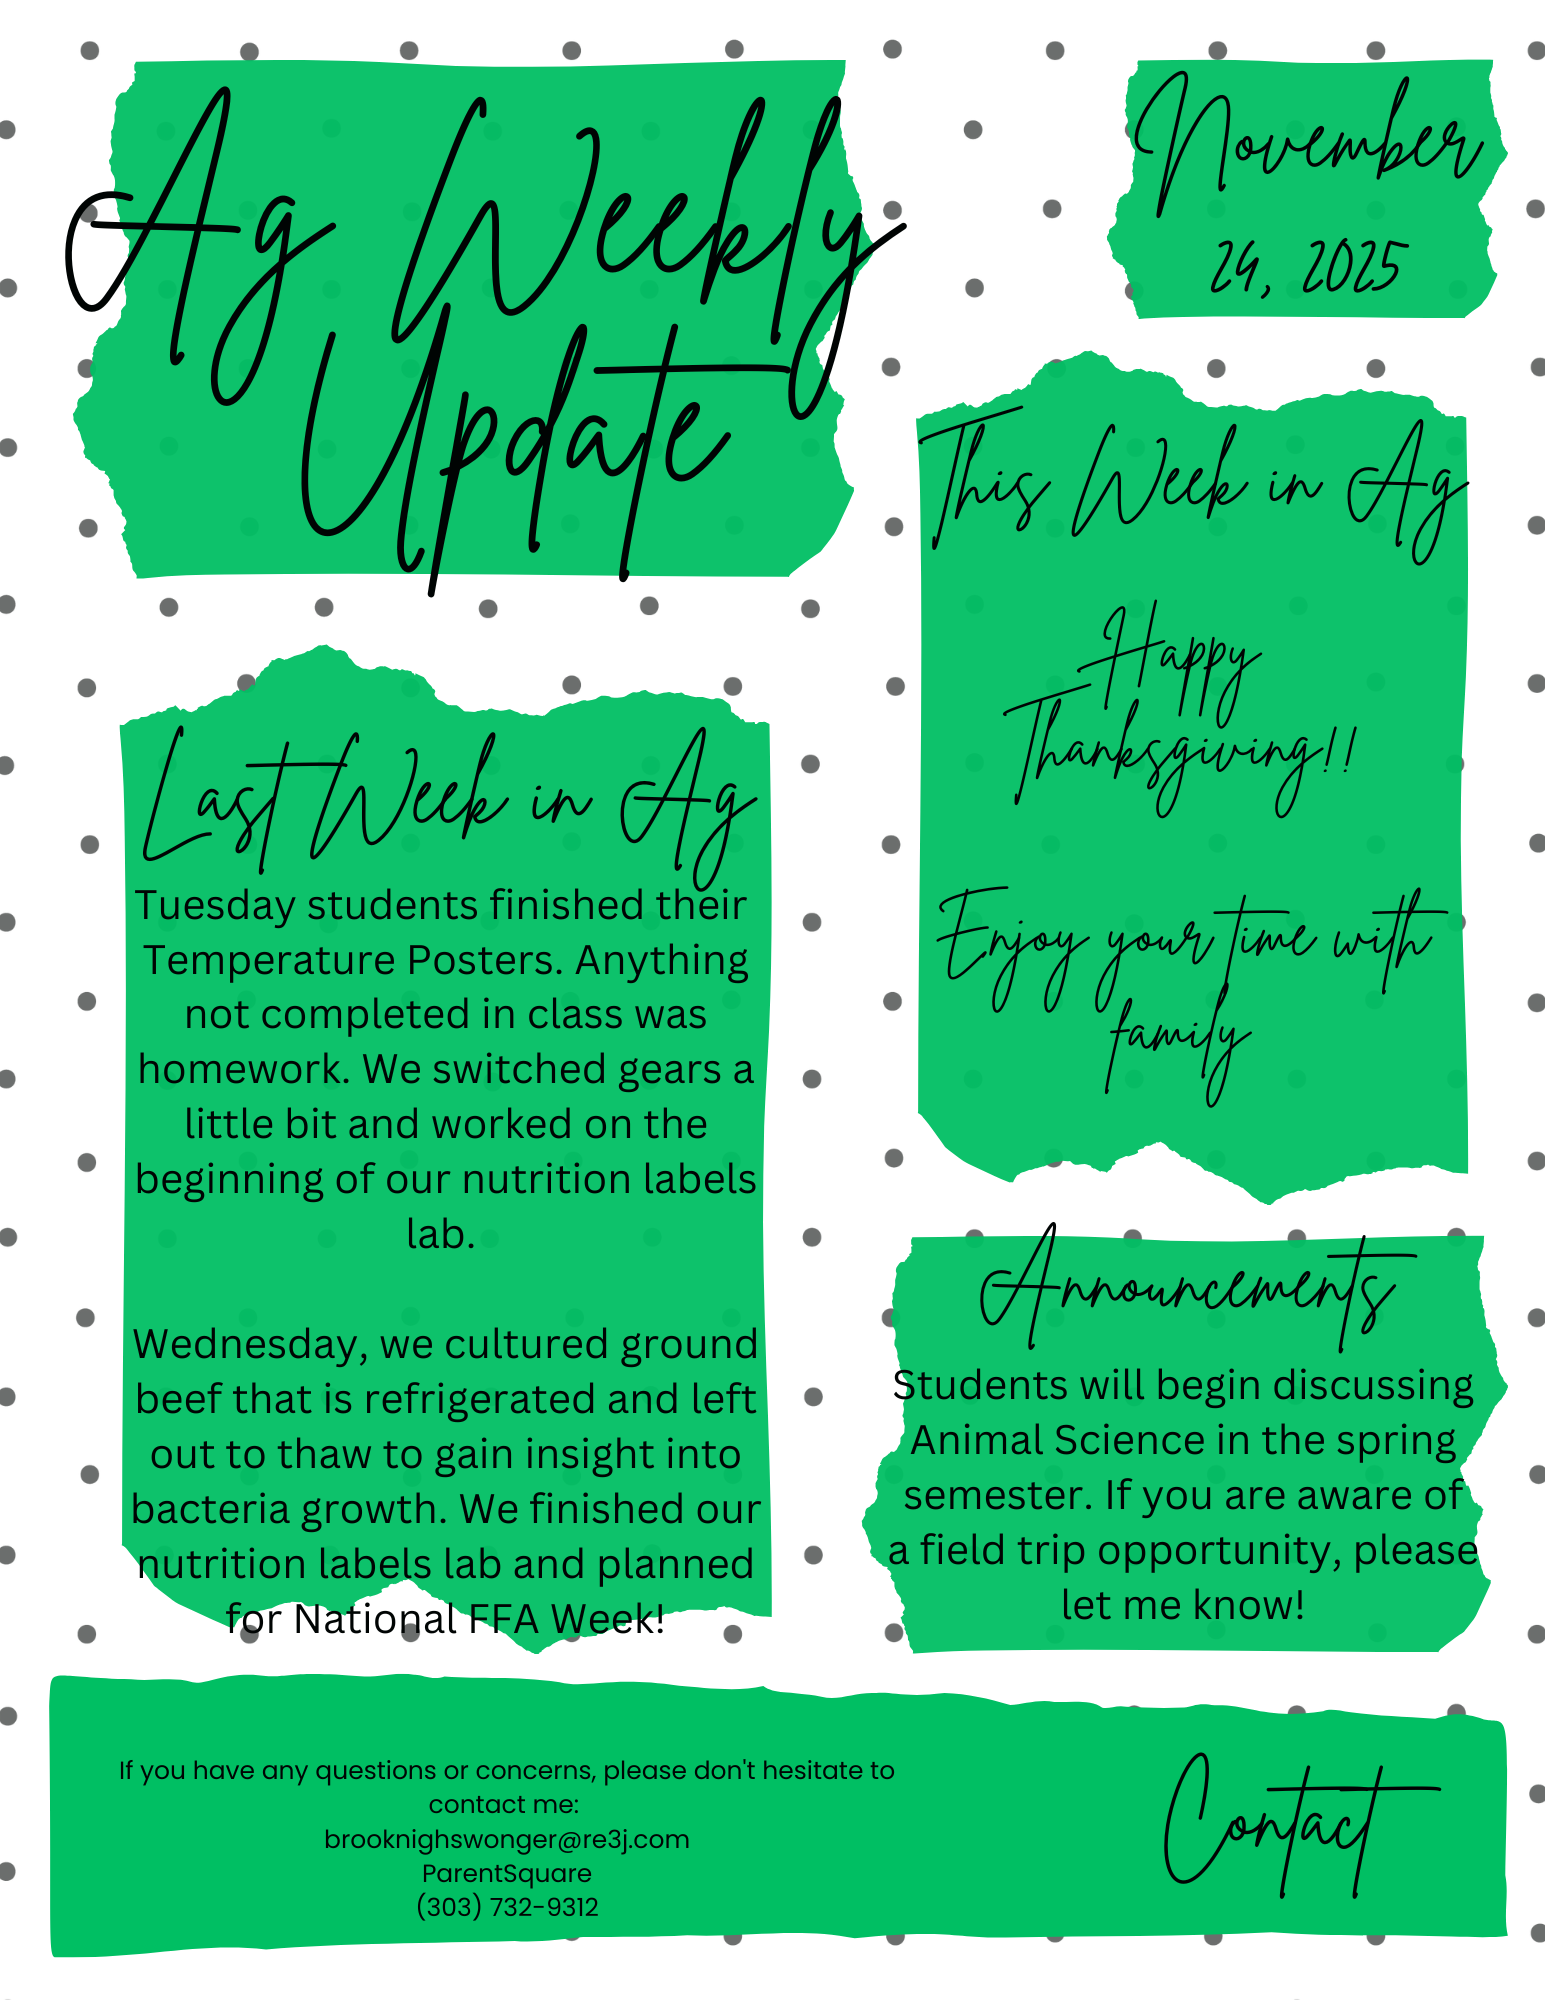 Ag Weekly
Update
November
24, 2025
Last Week in Ag
Tuesday students finished their
Temperature Posters. Anything
not completed in class was
homework. We switched gears a
little bit and worked on the
beginning of our nutrition labels
lab.
Wednesday, we cultured ground
beef that is refrigerated and left
out to thaw to gain insight into
bacteria growth. We finished our
nutrition labels lab and planned
for National FFA Week!
This Week in Ag
Happy
Thanksgiving!!
Enjoy your time with
family
Announcements
Students will begin discussing
Animal Science in the spring
semester. If you are aware of
a field trip opportunity, please
let me know!
If you have any questions or concerns, please don't hesitate to
contact me:
brooknighswonger@re3j.com
ParentSquare
(303) 732-9312
Contact